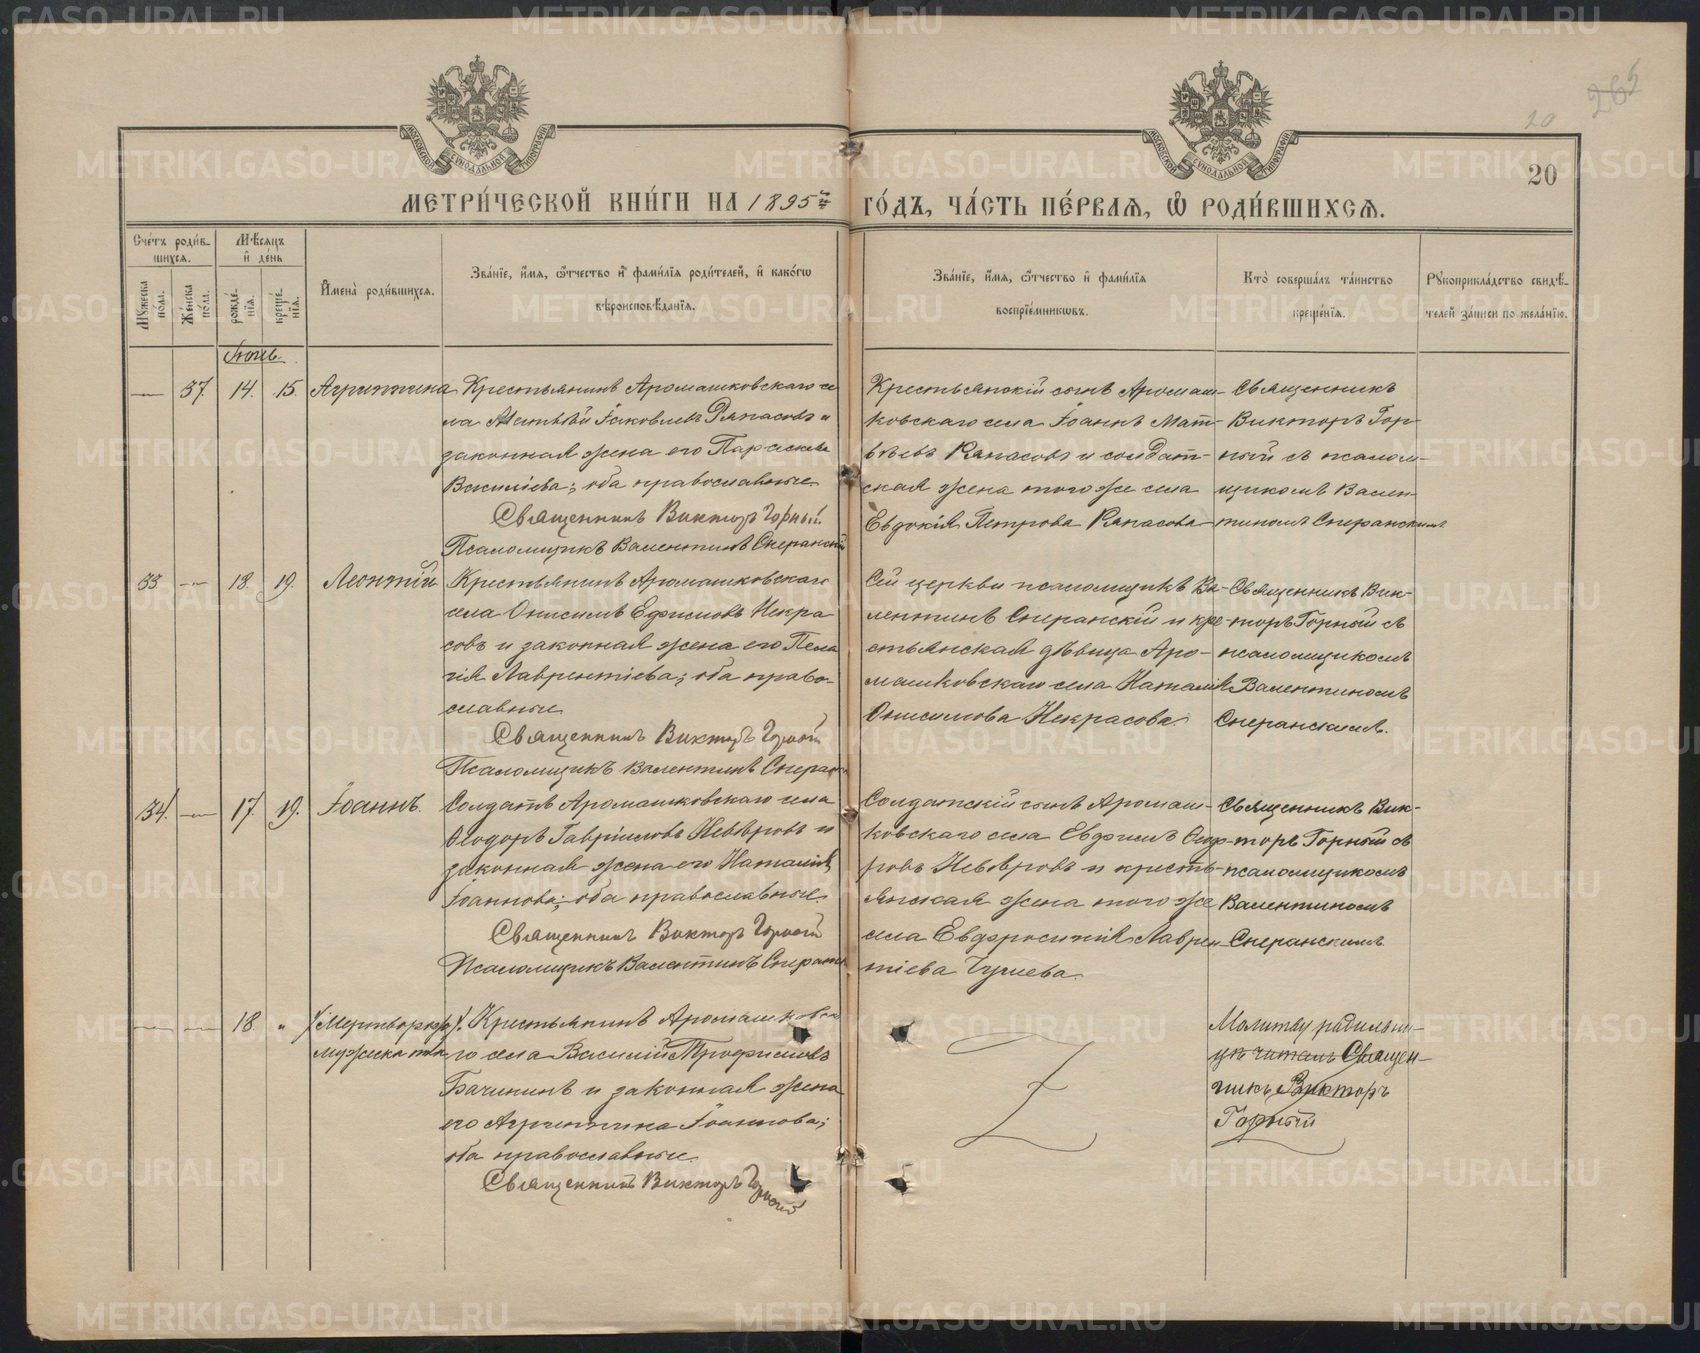 265
20
20
МЕТРИ́ЧЕСКОЙ КНИ́ГИ НА 1895й
ГО́ДЪ, ЧА́СТЬ ПЕ́РВАѦ, Ѡ҆ РОДИ́ВШИХСѦ.
Сче́тъ роди́в-
шихся.
Мѣ́сяцъ
и҆ де́нь
Мꙋ́жеска
по́ла.
Же́нска
по́ла.
рожде́-
нїѧ.
креще́-
нїѧ.
И҆мена̀ роди́вшихся.
Зва́нїе, и҆́мѧ, ѻ҆́тчество и҆ фами́лїѧ роди́телей, и҆ како́гѡ
вѣроисповѣ́данїѧ.
Зва́нїе, и҆́мѧ, ѻ҆́тчество и҆ фами́лїѧ
воспрїе́мникѡвъ.
Кто̀ соверша́лъ та́инство
креще́нїѧ.
Рꙋкоприкла́дство свидѣ́-
телей за́писи по жела́нїю.
Іюнь
37 14. 15. Агриппина
Крестьянинъ Аромашковскаго се
ла Матвѣй Іаковлевъ Рапасовъ и
законная жена его Параскева
Василіева; оба православные
Священникъ Викторъ Горный
Псаломщикъ Валентинъ Сперанскій
Крестьянскій сынъ Аромаш-
ковскаго села Іоаннъ Мат-
вѣевъ Рапасовъ и солдат-
ская жена того же села
Евдокія Петрова Рапасова
Священникъ
Викторъ Гор-
ный съ псалом-
щикомъ Вален-
тиномъ Сперанскимъ
33 18. 19. Леонтій
Крестьянинъ Аромашковскаго
села Онисимъ Ефимовъ Некра
совъ и законная жена его Пела
гія Лаврентіева; оба право-
славные
Священникъ Викторъ Горный
Псаломщикъ Валентинъ Сперанск
Сей церкви псаломщикъ Ва-
лентинъ Сперанскій и кре-
стьянская дѣвица Аро-
машковскаго села Наталія
Онисимова Некрасова
Священникъ Вик-
торъ Горный съ
псаломщикомъ
Валентиномъ
Сперанскимъ.
34. 17. 19. Іоаннъ
Солдатъ Аромашковскаго села
Ѳеодоръ Гавріиловъ Невѣровъ и
законная жена его Наталія
Іоаннова; оба православные
Священникъ Викторъ Горный
Псаломщикъ Валентинъ Сперанск
Солдатскій сынъ Аромаш-
ковскаго села Евфимъ Ѳеодо
ровъ Невѣровъ и кресть-
янская жена того же
села Евфросинія Лаврен
тіева
Священникъ Вик-
торъ Горный съ
псаломщикомъ
Валентиномъ
Сперанскимъ
18. „ Мертворожд.
мужеска пола
Крестьянинъ Аромашковска
го села Василій Трофимовъ
Бачининъ и законная жена
его Агриппина Іоаннова;
оба православные
Священникъ Викторъ Горный
Молитву родильни-
цѣ читалъ Священ-
никъ Викторъ
Горный
METRIKI.GASO-URAL.RU